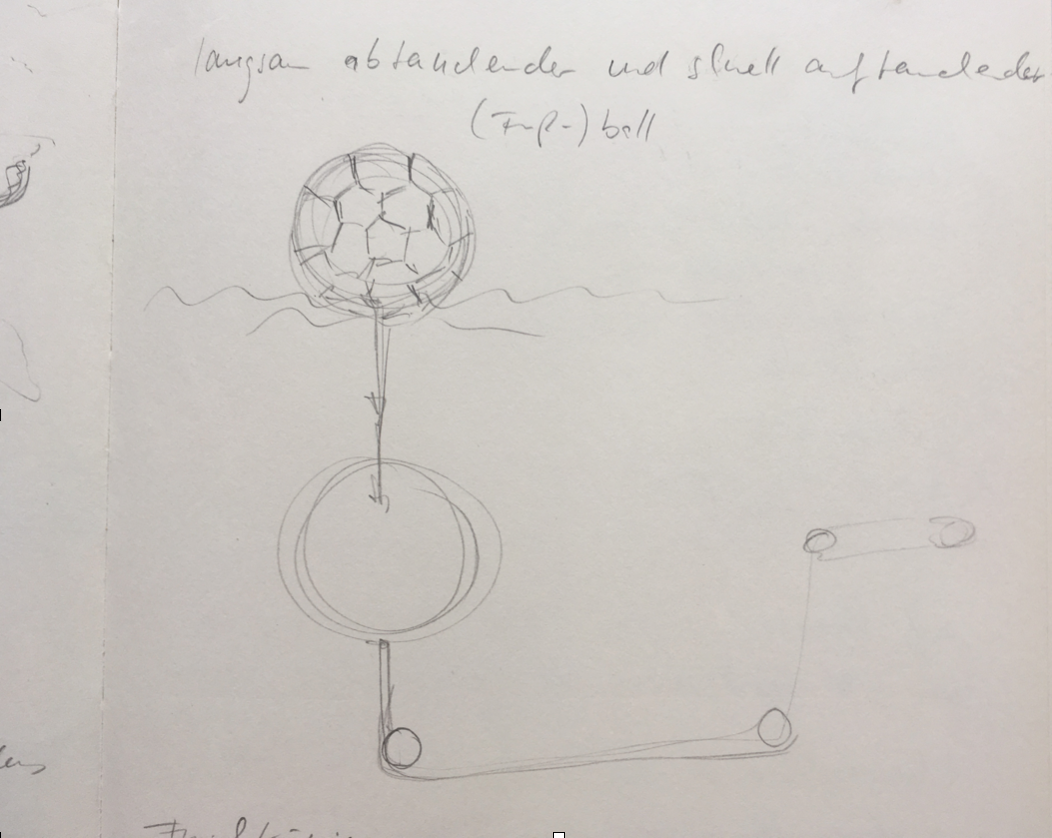 langsam abtauchender und schnell auftauchender
(Fuß-) ball